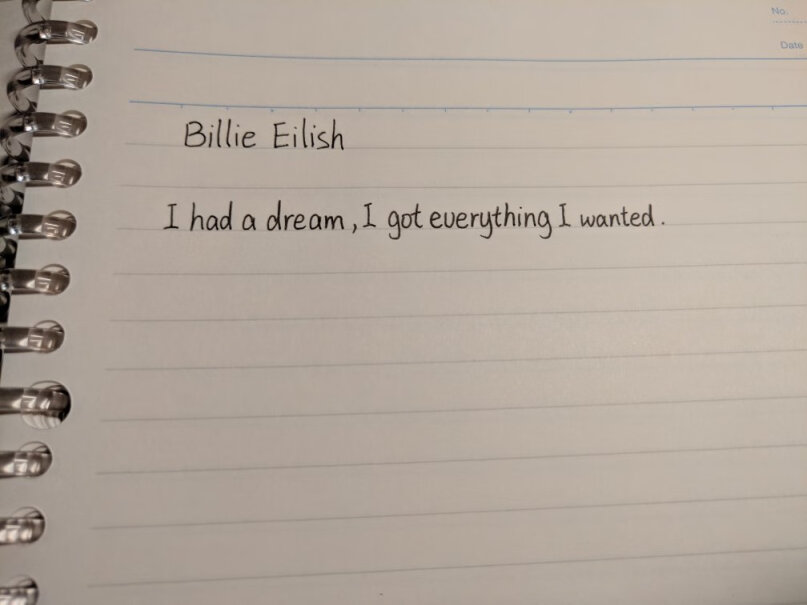 No.
Date
Billie Eilish
I had a dream, I got everything I wanted.